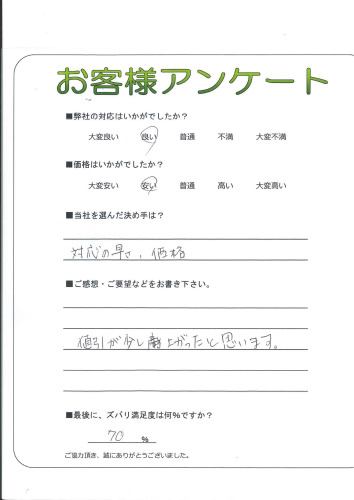 お客様アンケート
■弊社の対応はいかがでしたか?
大変良い 良い 普通 不満 大変不満
■価格はいかがでしたか?
大変安い 安い 普通 高い 大変高い
■当社を選んだ決め手は?
対応の早さ、価格
■ご感想・ご要望などをお書き下さい。
値引が少し上がったと思います。
■最後に、ズバリ満足度は何%ですか?
70 %
ご協力頂き、誠にありがとうございました。